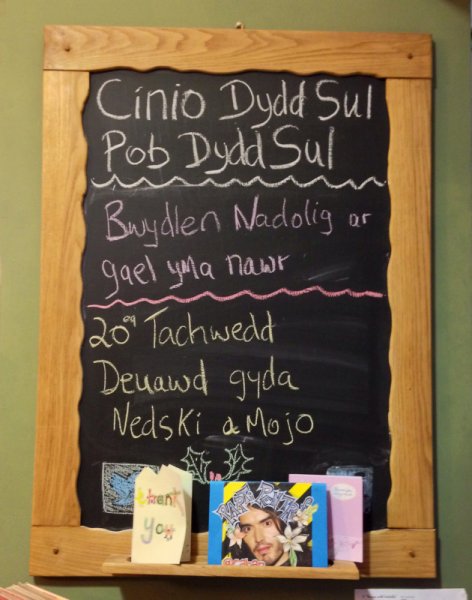 Cinio Dydd Sul
Pob Dydd Sul
Bwydlen Nadolig ar
gael yma nawr
20eg Tachwedd
Deuawd gyda
Nedski a Mojo
thank
you